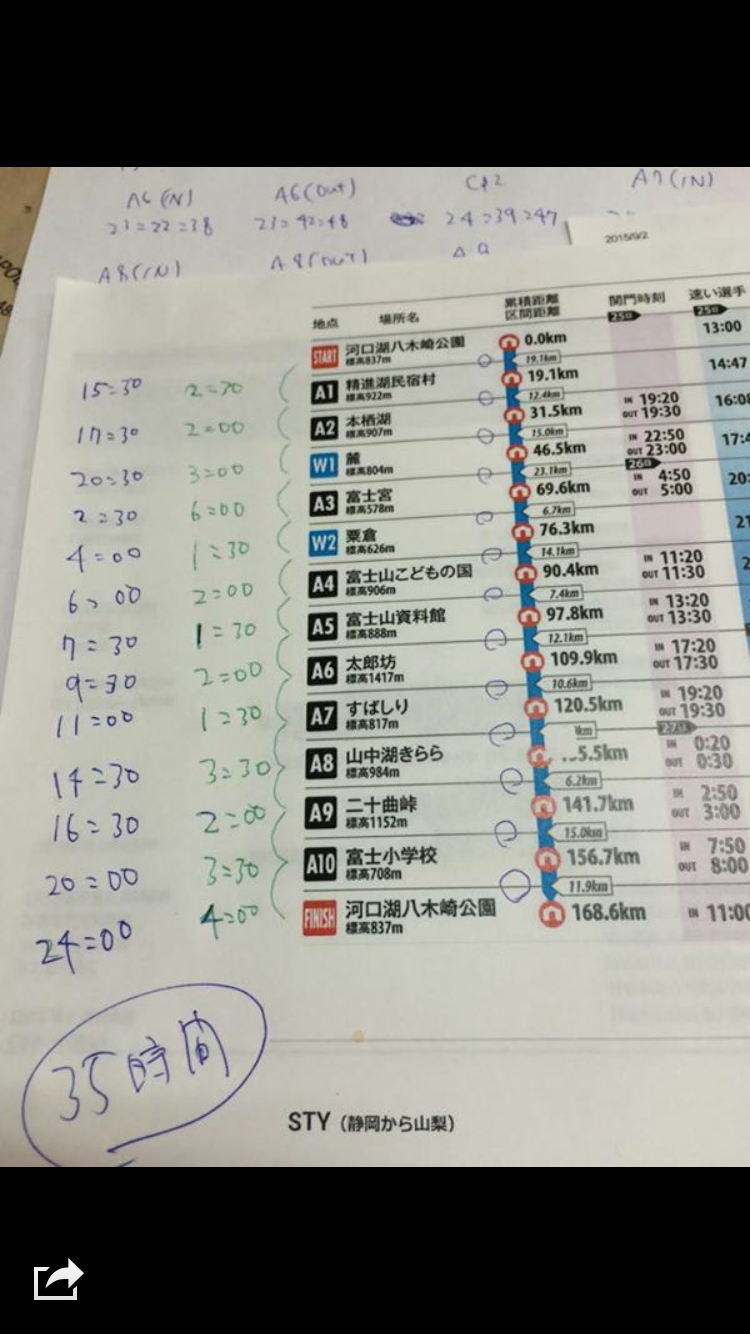 A6(IN) A6(OUT) CP2 A7(IN)
23:22:38 23:42:48 24:39:47
A8(IN) A8(OUT) A9
2015/9/2
地点 場所名 累積距離 関門時刻 速い選手
区間距離 25日 25日
START 河口湖八木崎公園 0.0km 13:00
標高837m 19.1km
15:30 2:30 A1 精進湖民宿村 19.1km 14:47
標高922m 12.4km
17:30 2:00 A2 本栖湖 31.5km IN 19:20 16:08
標高907m 15.0km OUT 19:30
20:30 3:00 W1 麓 46.5km IN 22:50 17:4
標高804m 23.1km OUT 23:00
26日
2:30 6:00 A3 富士宮 69.6km IN 4:50 20:
標高578m 6.7km OUT 5:00
4:00 1:30 W2 粟倉 76.3km 21
標高626m 14.1km
6:00 2:00 A4 富士山こどもの国 90.4km IN 11:20
標高906m 7.4km OUT 11:30
7:30 1:30 A5 富士山資料館 97.8km IN 13:20
標高888m 12.1km OUT 13:30
9:30 2:00 A6 太郎坊 109.9km IN 17:20
標高1417m 10.6km OUT 17:30
11:00 1:30 A7 すばしり 120.5km IN 19:20
標高817m km OUT 19:30
27日
14:30 3:30 A8 山中湖きらら 5.5km IN 0:20
標高984m 6.2km OUT 0:30
16:30 2:00 A9 二十曲峠 141.7km IN 2:50
標高1152m 15.0km OUT 3:00
20:00 3:30 A10 富士小学校 156.7km IN 7:50
標高708m 11.9km OUT 8:00
24:00 4:00 FINISH 河口湖八木崎公園 168.6km IN 11:00
標高837m
35時間
STY（静岡から山梨）